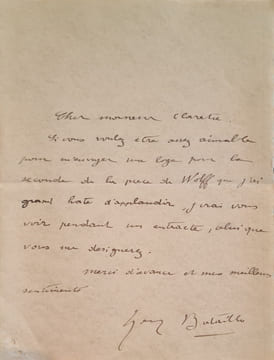 Cher monsieur Claretie
Si vous voulez etre assez aimable
pour m'envoyer une loge pour la
seconde de la piece de Wolff que j'ai
grand hate d'applaudir. J'irai vous
voir pendant un entracte, celui que
vous me designerez.
Merci d'avance et mes meilleurs
sentiments
Henry Bataille